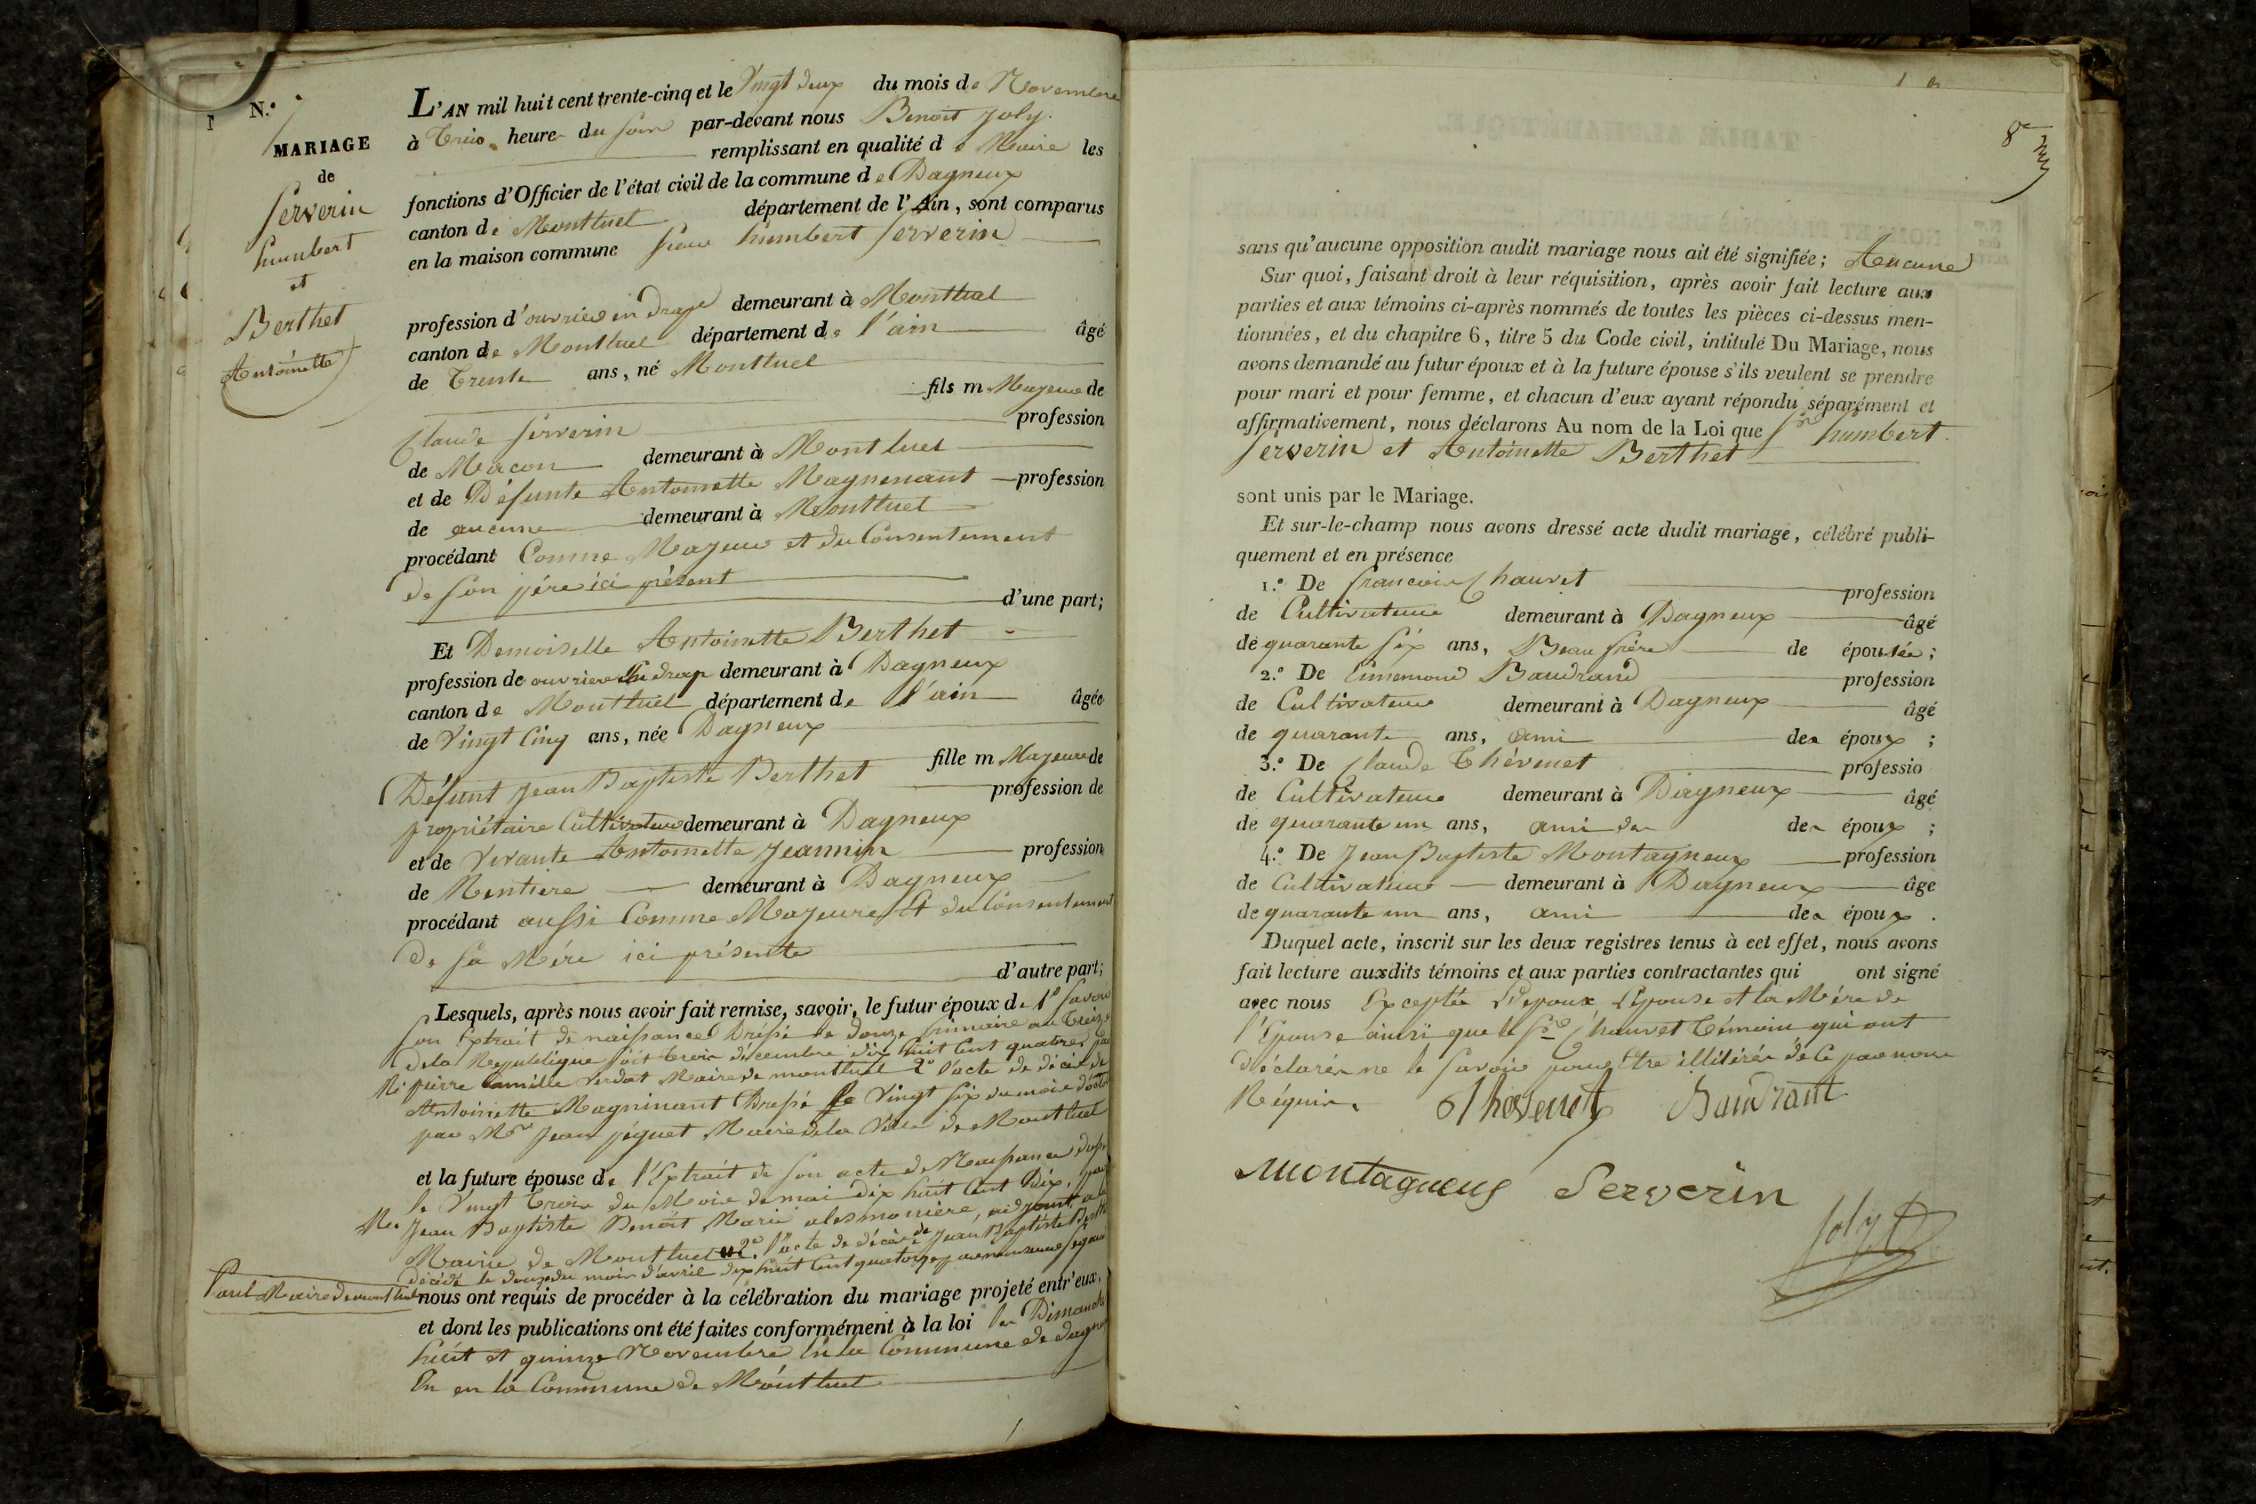 N.°
MARIAGE
de
Serverin
humbert
et
Berthet
Antoinette
L'AN mil huit cent trente-cinq et le Vingt deux du mois de Novembre
à Trois heure du soir par-devant nous Benoit Joly.
remplissant en qualité de Maire les
fonctions d'Officier de l'état civil de la commune de Dagneux
canton de Montluel département de l'Ain, sont comparus
en la maison commune Sieur humbert Serverin
profession d'ouvrier en drap demeurant à Montluel
canton de Montluel département de l'ain âgé
de Trente ans, né Montluel
fils m Majeur de
Claude Serverin profession
de Macon demeurant à Montluel
et de Défunte Antoinette Magnenant profession
de aucune demeurant à Montluel
procédant Comme Majeur et du Consentement
de son père ici présent
d'une part;
Et Demoiselle Antoinette Berthet
profession de ouvrière En drap demeurant à Dagneux
canton de Montluel département de l'ain âgée
de Vingt Cinq ans, née Dagneux
fille m Majeure de
Défunt Jean Baptiste Berthet profession de
propriétaire Cultivateur demeurant à Dagneux
et de Vivante Antoinette Jeannin profession
de Rentière demeurant à Dagneux
procédant aussi Comme Majeure Et du Consentement
de sa Mère ici présente
d'autre part;
Lesquels, après nous avoir fait remise, savoir, le futur époux de 1° savoir
son Extrait de naissance Dréssé le douze frimaire an Treize
de la République soit trois décembre dix huit Cent quatre, par
Mr pierre Camille Verdat Maire de montluel 2° l'acte de décès de
Antoinette Magninant Dressé le Vingt six du mois d'octo
par Mr Jean piquet Maire de la Ville de Montluel
et la future épouse de l'Extrait de son acte de Naissance dressé
le Vingt Trois du Mois de mai dix huit Cent Dix, par
Mr Jean Baptiste Benoit Marie alesmoniere, adjoint a la
Mairie de Montluel 2° l'acte de décès de Jean Baptiste Berthet
décédé le douze du mois d'avril dix huit Cent quatorze par
Paul Maire de montluel nous ont requis de procéder à la célébration du mariage projeté entr'eux,
et dont les publications ont été faites conformément à la loi les Dimanche
huit et quinze Novembre En la Commune de dagneux
En en la Commune de Montluel
8e
sans qu'aucune opposition audit mariage nous ait été signifiée; Aucune
Sur quoi, faisant droit à leur réquisition, après avoir fait lecture aux
parties et aux témoins ci-après nommés de toutes les pièces ci-dessus men-
tionnées, et du chapitre 6, titre 5 du Code civil, intitulé Du Mariage, nous
avons demandé au futur époux et à la future épouse s'ils veulent se prendre
pour mari et pour femme, et chacun d'eux ayant répondu séparément et
affirmativement, nous déclarons Au nom de la Loi que Sr humbert
Serverin et Antoinette Berthet
sont unis par le Mariage.
Et sur-le-champ nous avons dressé acte dudit mariage, célébré publi-
quement et en présence
1.° De francois Chauvet profession
de Cultivateur demeurant à Dagneux âgé
de quarante six ans, Beau frère de épousée;
2.° De Ennemond Baudrand profession
de Cultivateur demeurant à Dagneux âgé
de quarante ans, ami des époux;
3.° De Claude Thévenet professio
de Cultivateur demeurant à Dagneux âgé
de quarante un ans, ami des des époux;
4.° De Jean Baptiste Montagneux profession
de Cultivateur demeurant à Dagneux âge
de quarante un ans, ami des époux.
Duquel acte, inscrit sur les deux registres tenus à cet effet, nous avons
fait lecture auxdits témoins et aux parties contractantes qui ont signé
avec nous Exceptée l'époux l'Epouse et la Mère de
l'Epouse ainsi que le Sr Chauvet Témoin qui ont
déclarés ne le savoir pour être illitérés de Ce par nous
Réquis.
Thevenet Baudrant
Montagneux Serverin
Joly